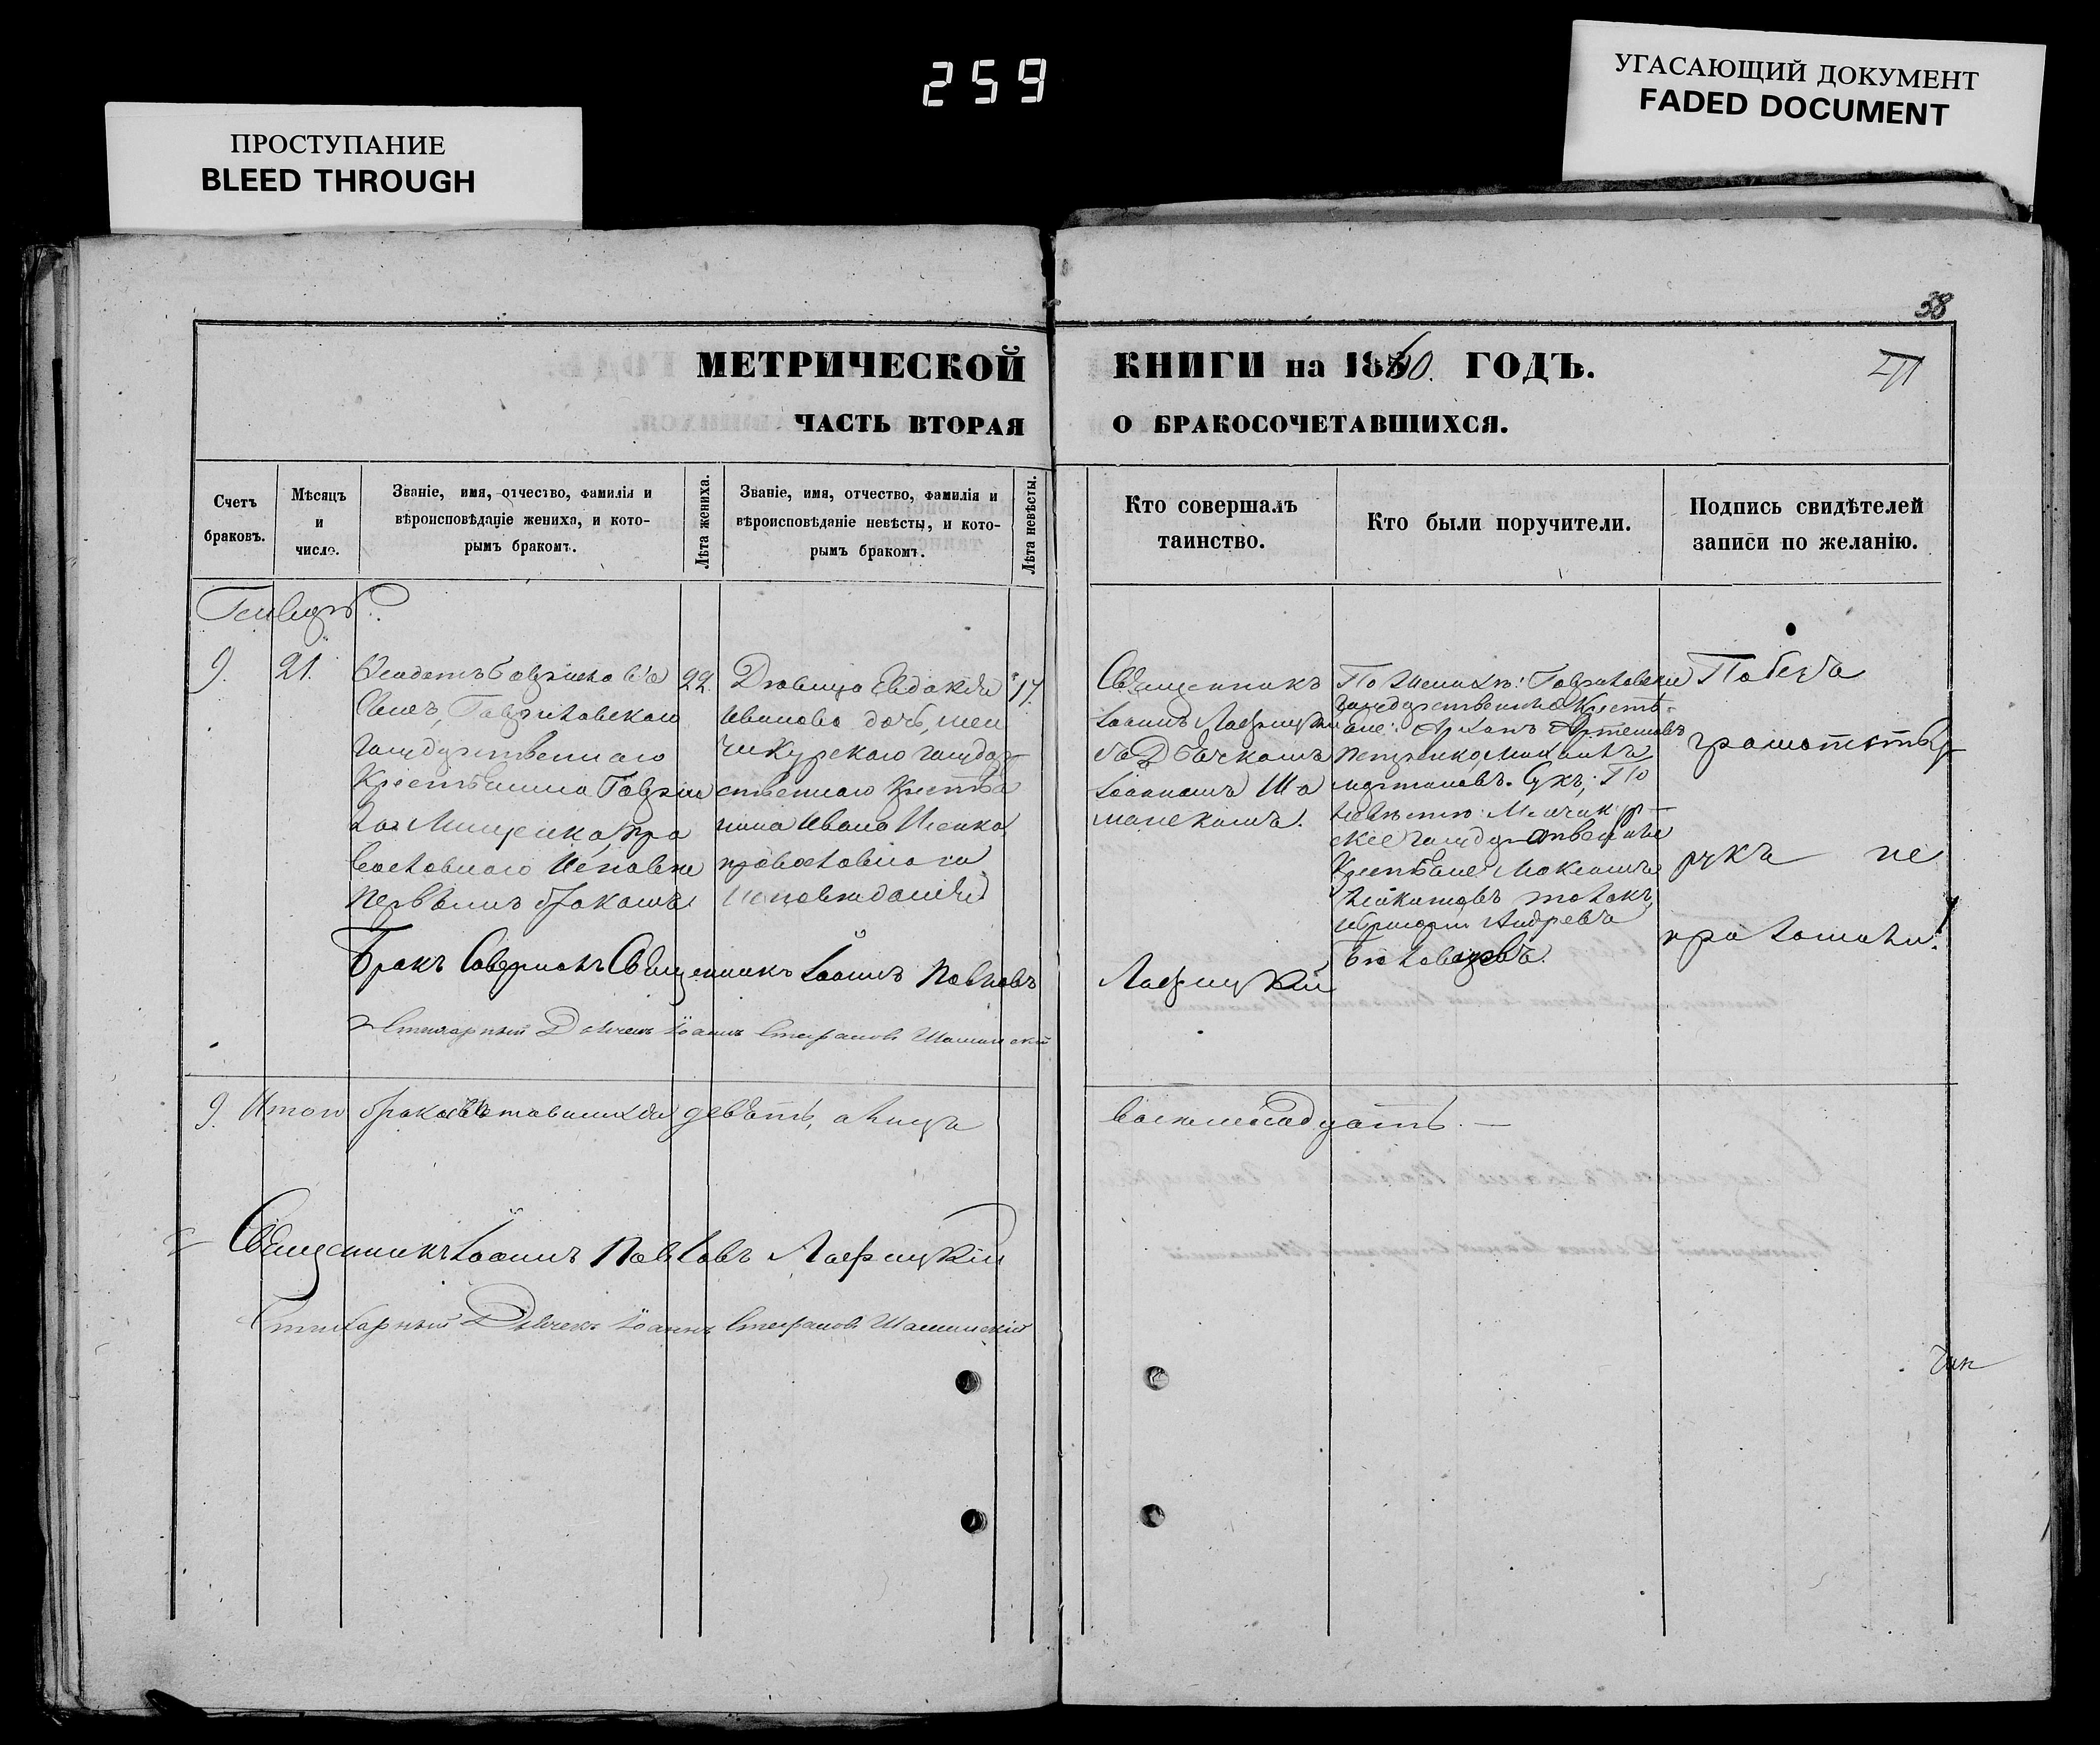 259
ПРОСТУПАНИЕ
BLEED THROUGH
УГАСАЮЩИЙ ДОКУМЕНТ
FADED DOCUMENT
38
МЕТРИЧЕСКОЙ КНИГИ на 1860. ГОДЪ.
ЧАСТЬ ВТОРАЯ О БРАКОСОЧЕТАВШИХСЯ.
Счетъ
браковъ.
Мѣсяцъ
и
число.
Званіе, имя, отчество, фамилія и
вѣроисповѣданіе жениха, и кото-
рымъ бракомъ.
Лѣта жениха.
Званіе, имя, отчество, фамилія и
вѣроисповѣданіе невѣсты, и кото-
рымъ бракомъ.
Лѣта невѣсты.
Кто совершалъ
таинство.
Кто были поручители.
Подпись свидѣтелей
записи по желанію.
Генварь
9. 21.
Сынъ, Гавриловскаго
государственнаго
Крестьянина Гаврии
ла Мищенка, пра
вославнаго Исповѣ
первымъ бракомъ
22.
Дѣвица Евдокія
Иванова дочь, мен
чикурскаго государ
ственнаго Крестья
нина Ивана
православнаго
Исповѣданія
17.
Священникъ
Іоаннъ Лафицкій
съ Дьячкомъ
Іоанномъ Ша
манскимъ.
По Женихѣ: Гавриловскіе
государственные Кресть-
яне: Артемовъ
Петренко, Михаилъ
Мартиновъ. Сукъ; По
невѣстѣ: Менчикур-
скіе государственные
Крестьяне Максимъ
Никитовъ
Григорій Андреевъ
грамотству
рукъ не
приложили.
Бракъ Совершалъ Священникъ Іоаннъ Павловъ Лафицкій
Стихарный Дьячекъ Іоаннъ Стефановъ Шаманскій
9. Итого бракосочетавшихся девять, а лица восемьнадцать. —
Священникъ Іоаннъ Павловъ Лафицкій
Стихарный Дьячекъ Іоаннъ Стефановъ Шаманскій